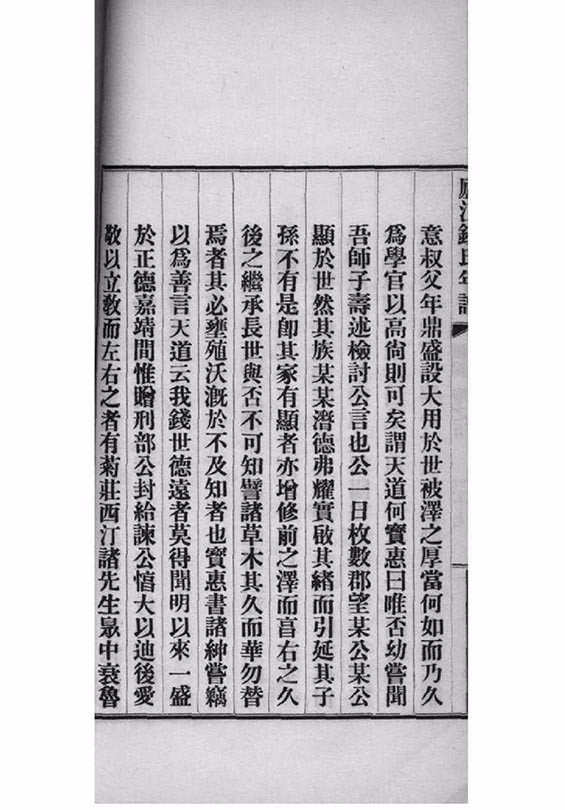 錢氏年譜
意叔父年鼎盛設大用於世被澤之厚當何如而乃久
爲學官以高尙則可矣謂天道何寶惠曰唯否幼嘗聞
吾師子壽述檢討公言也公一日枚數郡望某公某公
顯於世然其族某某潛德弗耀實啟其緒而引延其子
孫不有是卽其家有顯者亦增修前之澤而喜右之久
後之繼承長世與否不可知譬諸草木其久而華勿替
焉者其必壅殖沃漑於不及知者也寶惠書諸紳嘗竊
以爲善言天道云我錢世德遠者莫得聞明以來一盛
於正德嘉靖間惟贈刑部公封給諫公愭大以迪後愛
敬以立敎而左右之者有菊莊西汀諸先生泉中衰魯